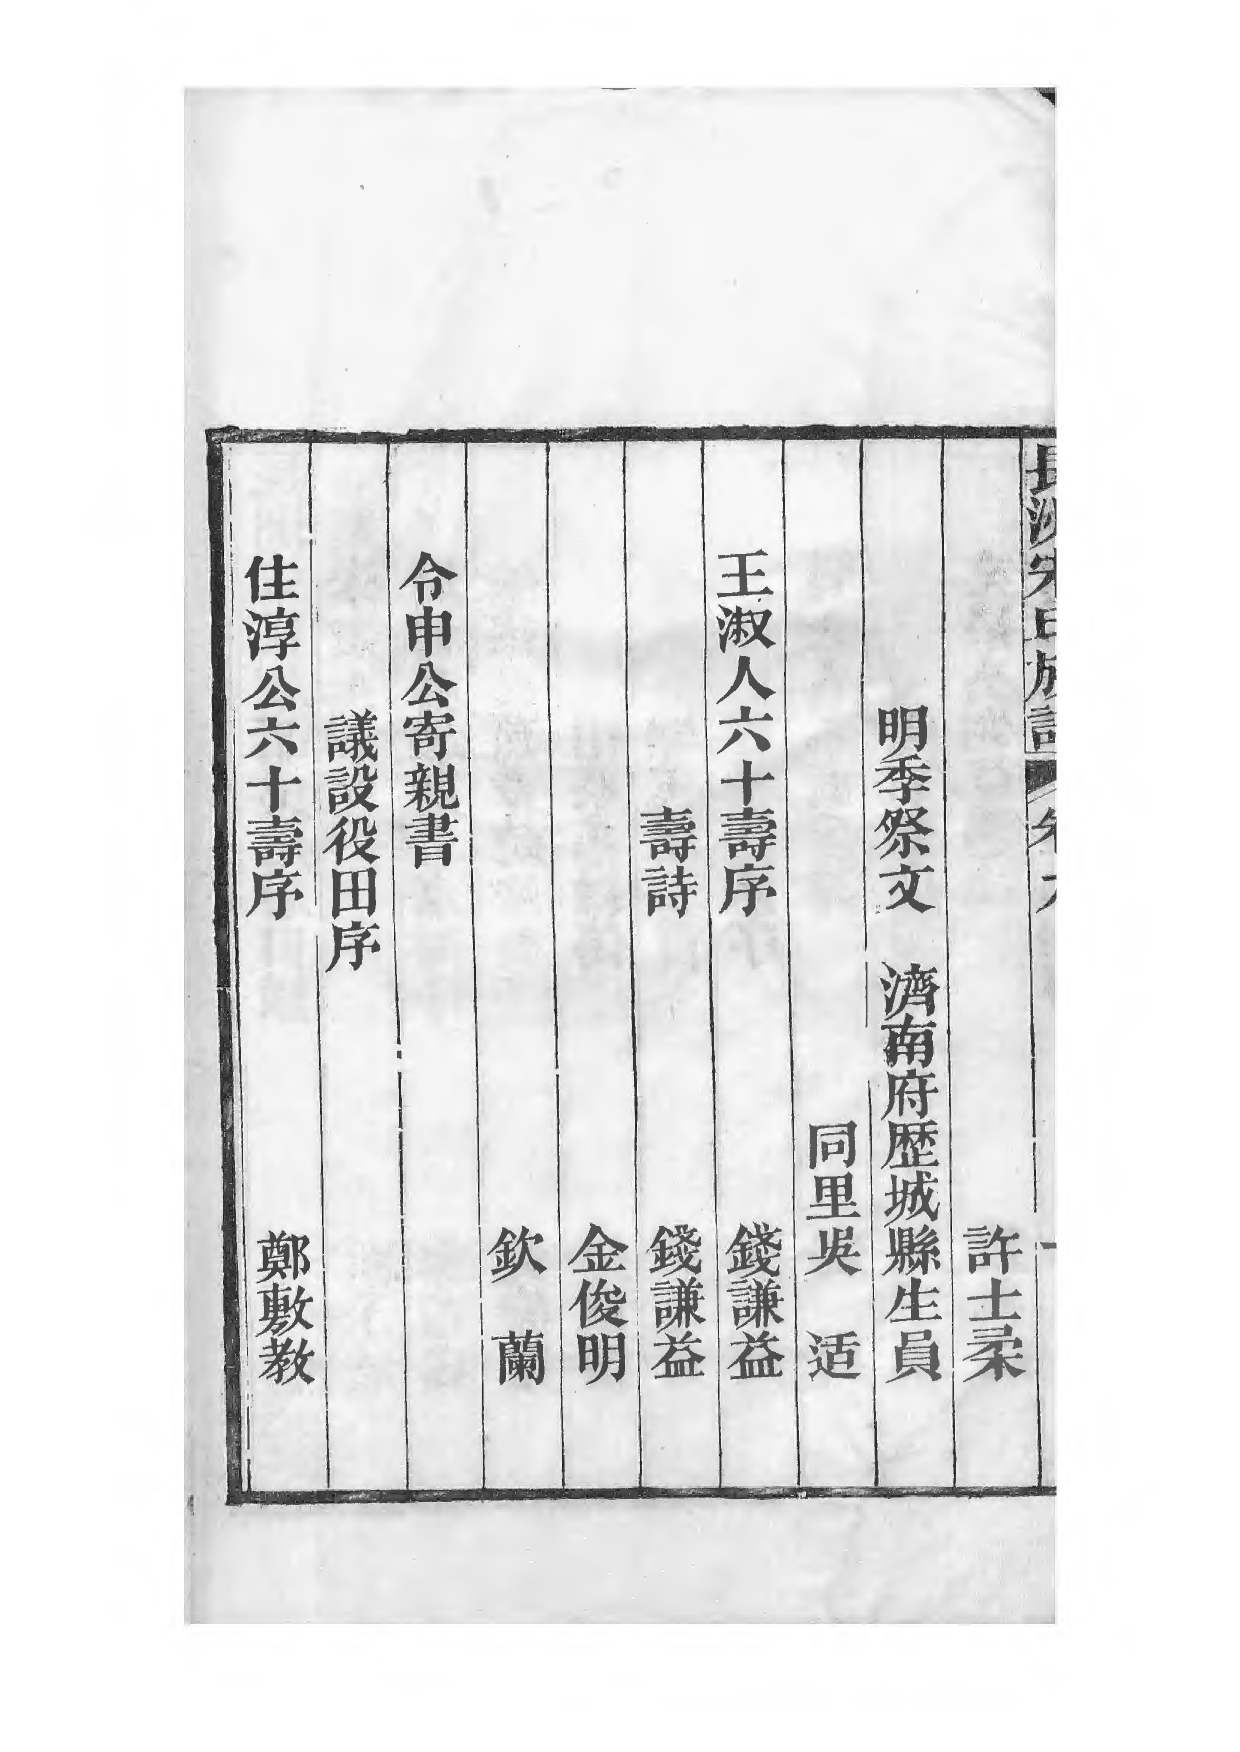 長洲宋氏族譜 卷六 一
許士柔
明季祭文 濟南府歷城縣生員
同里吳 适
王淑人六十壽序 錢謙益
壽詩 錢謙益
金俊明
欽 蘭
令申公寄親書
議設役田序
住淳公六十壽序 鄭敷教